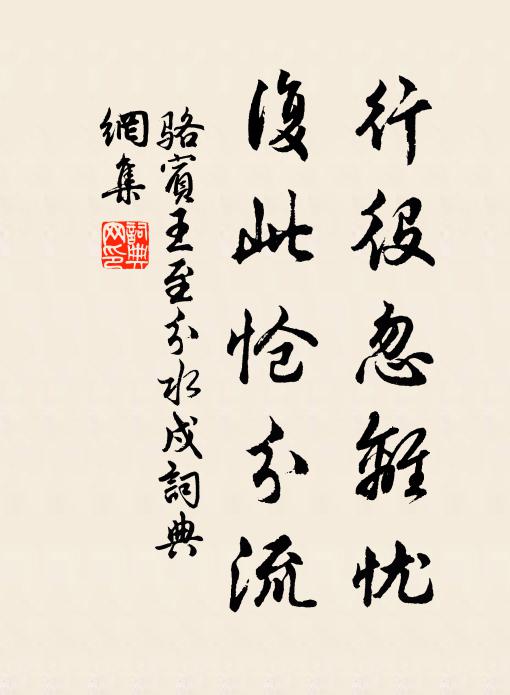 行役忽離忧
復此怆分流
骆賓王至分水戍詞典
網集
詞典
网印